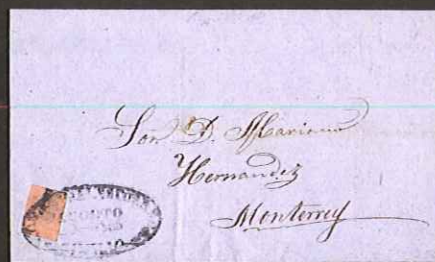 Sor. D. Mariano
Hernandez
Monterrey
AGOSTO